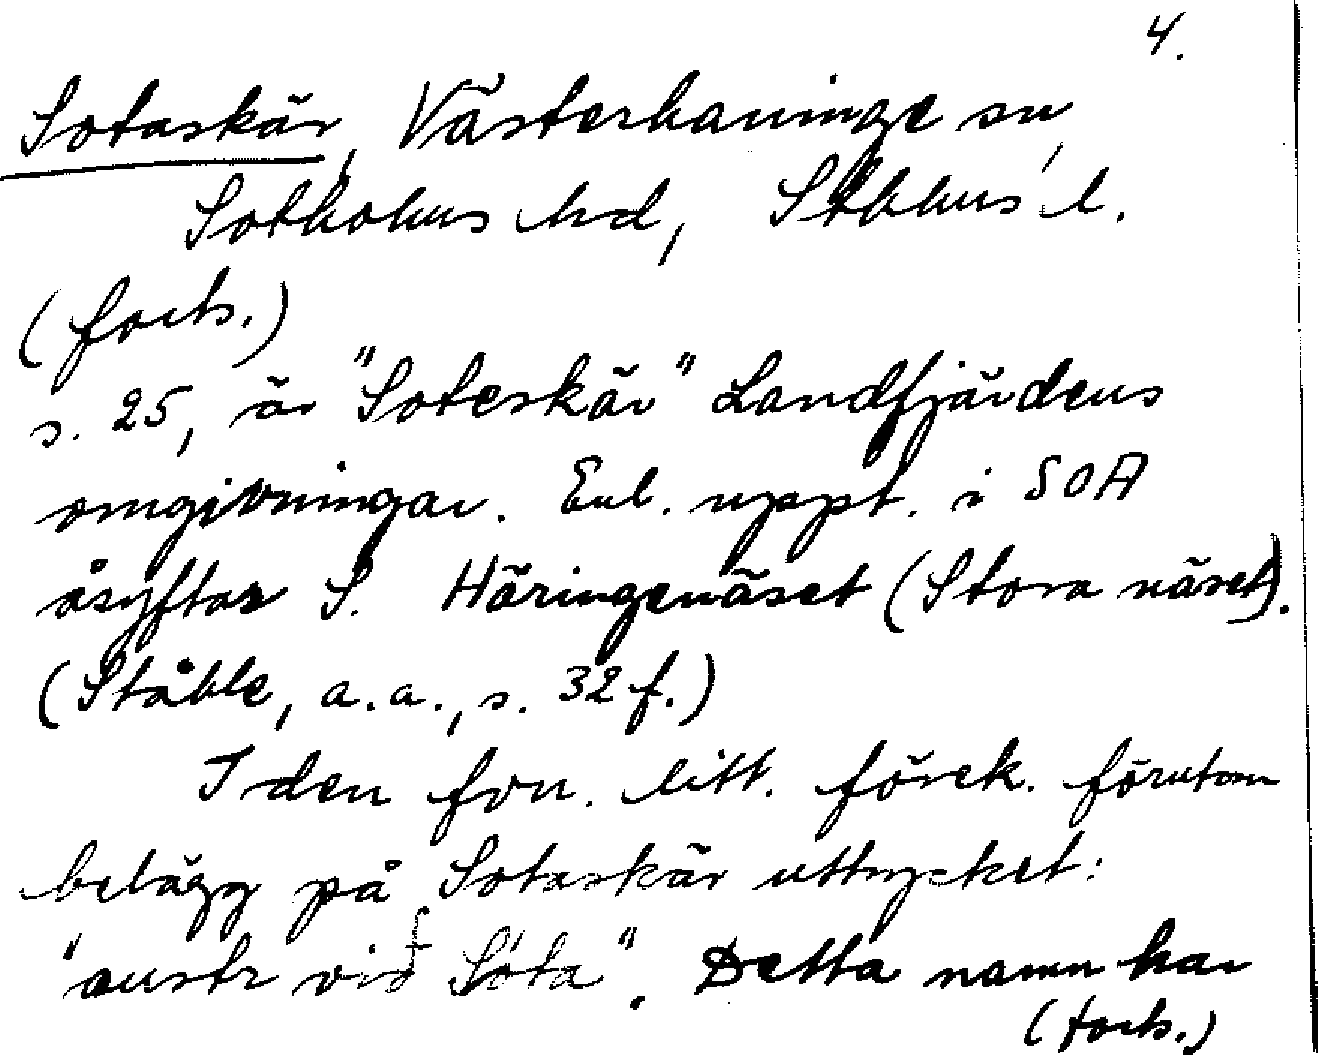 4.
Sotaskär, Västerhaninge sn,
Sotholms hd, Sthlms l.
(forts.)
s. 25, är "Soteskär" Landfjärdens
omgivningar. Enl. uppt. i SOA
åsyftas S. Häringenäset (Stora näset).
(Ståhle, a.a., s. 32 f.)
I den fvn. litt. förek. förutom
belägg på Sotaskär uttrycket:
"austr við Sóta". Detta namn har
(forts.)